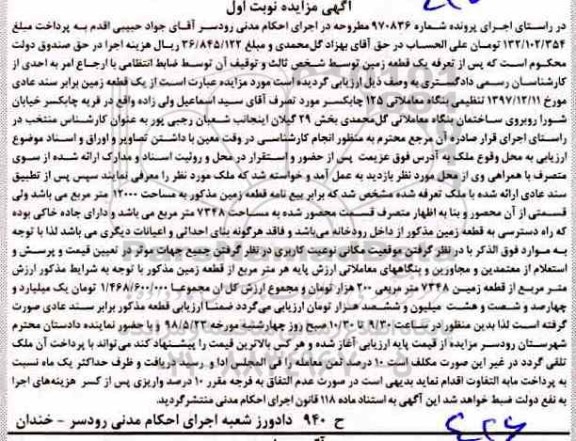 آگهی مزایده نوبت اول
در راستای اجرای پرونده شماره ۹۷۰۸۳۶ مطروحه در اجرای احکام مدنی رودسر آقای جواد حبیبی اقدم به پرداخت مبلغ
۱۳۲/۱۰۲/۳۵۴ تومان علی الحساب در حق آقای بهزاد گل‌محمدی و مبلغ ۳۶/۸۴۵/۱۲۲ ریال هزینه اجرا در حق صندوق دولت
محکوم است که پس از تعرفه یک قطعه زمین توسط شخص ثالث و توقیف آن توسط ضابط انتظامی با ارجاع امر به احدی از
کارشناسان رسمی دادگستری به وصف ذیل ارزیابی گردیده است مورد مزایده عبارت است از یک قطعه زمین برابر سند عادی
مورخ ۱۳۹۷/۱۲/۱۱ تنظیمی بنگاه معاملاتی ۱۲۵ چابکسر مورد تصرف آقای سید اسماعیل ولی زاده واقع در قریه چابکسر خیابان
شورا روبروی ساختمان بنگاه معاملاتی گل‌محمدی بخش ۲۹ گیلان اینجانب شعبان رجبی پور به عنوان کارشناس منتخب در
راستای اجرای قرار صادره آن مرجع محترم به منظور انجام کارشناسی در وقت معین با داشتن تصاویر و اوراق و اسناد موضوع
ارزیابی به محل وقوع ملک به آدرس فوق عزیمت پس از حضور و استقرار در محل و روئیت اسناد و مدارک ارائه شده از سوی
متصرف با همراهی وی از محل مورد نظر بازدید به عمل آمد و خواسته شد که ملک مورد نظر را معرفی نمایند سپس پس از تطبیق
سند عادی ارائه شده با ملک تعرفه شده مشخص شد که برابر بیع نامه قطعه زمین مذکور به مساحت ۱۲۰۰۰ متر مربع می باشد ولی
قسمتی از آن محصور و بنا به اظهار متصرف قسمت محصور شده به مساحت ۷۳۴۸ متر مربع می باشد و دارای جاده خاکی بوده
که راه دسترسی به قطعه زمین مذکور از داخل رودخانه می‌باشد و فاقد هرگونه بنای احداثی و اعیانات دیگری می باشد لذا با توجه
به موارد فوق الذکر با در نظر گرفتن موقعیت مکانی نوعیت کاربری در نظر گرفتن جمیع جهات موثر در تعیین قیمت و پرسش و
استعلام از معتمدین و مجاورین و بنگاههای معاملاتی ارزش پایه هر متر مربع از قطعه زمین مذکور با توجه به شرایط مذکور ارزش
متر مربع از قطعه زمین ۷۳۴۸ متر مربعی ۲۰۰ هزار تومان و مجموع ارزش کل ان مجموعا ۱/۴۶۸/۶۰۰/۰۰۰ تومان یک میلیارد و
چهارصد و شصت و هشت میلیون و ششصد هزار تومان ارزیابی می‌گردد ضمنا ارزیابی قطعه مذکور برابر سند عادی صورت
گرفته است لذا بدین منظور در ساعت ۹/۳۰ تا ۱۰/۳۰ صبح روز چهارشنبه مورخه ۹۸/۵/۲۳ و با حضور نماینده دادستان محترم
شهرستان رودسر مزایده از قیمت پایه ارزیابی آغاز شده و هر کس بالاترین قیمت را پیشنهاد کند می تواند با پرداخت آن ملک
تلقی گردد در غیر این صورت مکلف است ۱۰ درصد ثمن معامله را فی المجلس ادا و رسید دریافت و ظرف حداکثر یک ماه نسبت
به پرداخت مابه التفاوت اقدام نماید بدیهی است در صورت عدم التفاق به فرجه مقرر ۱۰ درصد واریزی پس از کسر هزینه‌های اجرا
به نفع دولت ضبط خواهد شد این آگهی به استناد ماده ۱۱۸ قانون اجرای احکام مدنی منتشرگردید.
ح ۹۴۰ دادورز شعبه اجرای احکام مدنی رودسر - خندان